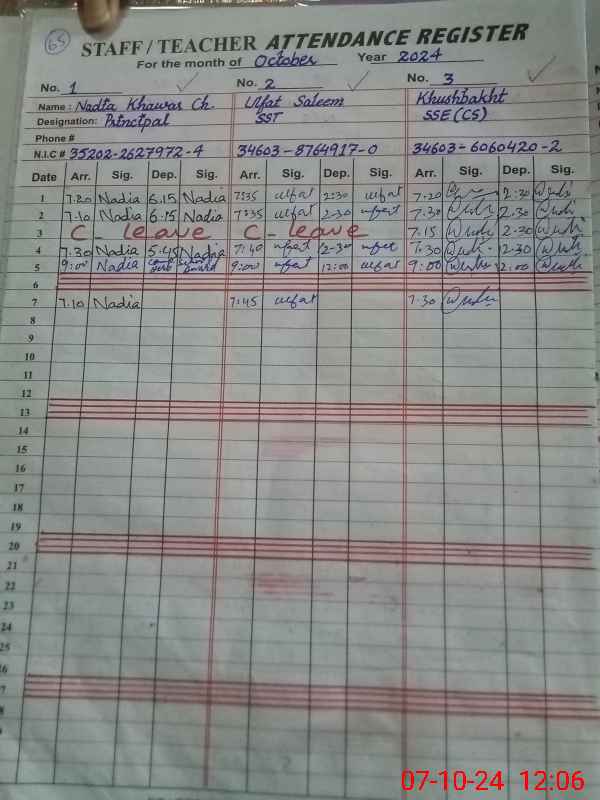 65
STAFF / TEACHER ATTENDANCE REGISTER
For the month of October Year 2024
No. 1 No. 2 No. 3
Name : Nadia Khawar Ch. Ulfat Saleem Khushbakht
Designation: Principal SST SSE (CS)
Phone #
N.I.C # 35202-2627972-4 34603-8764917-0 34603-6060420-2
Date Arr. Sig. Dep. Sig. Arr. Sig. Dep. Sig. Arr. Sig. Dep. Sig.
1 7.20 Nadia 6.15 Nadia 7:35 ulfat 2:30 ulfat 7.20 2:30
2 7.10 Nadia 6.15 Nadia 7:35 ulfat 2.30 ulfat 7.30 2.30
3 C - leave C - leave 7.15 2.30
4 7.30 Nadia 5.45 Nadia 7:40 ulfat 2-30 ulfat 7.30 12.30
5 9:00 Nadia 9:00 ulfat 12:00 ulfat 9:00 2:00
6
7 7.10 Nadia 7:45 ulfat 7.30
8
9
10
11
12
13
14
15
16
17
18
19
20
21
22
23
24
25
26
07-10-24 12:06